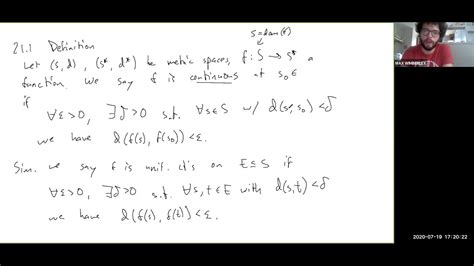 S = dom(f)
21.1 Definition
Let (S, d), (S*, d*) be metric spaces, f: S → S* a
function. We say f is continuous at s₀ ∈
if
∀ε>0, ∃δ>0 s.t. ∀s∈S w/ d(s, s₀) < δ
we have d(f(s), f(s₀)) < ε.
Sim. we say f is unif. ct's on E ⊆ S if
∀ε>0, ∃δ>0 s.t. ∀s,t ∈ E with d(s,t) < δ
we have d(f(s), f(t)) < ε.
2020-07-19 17:20:22